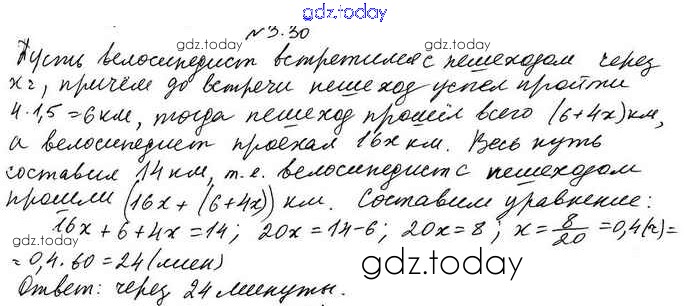 gdz.today
№3.30
gdz.today gdz.today
Пусть велосипедист встретился с пешеходом через
x г, причём до встречи пешеход успел пройти
4·1,5=6 км, тогда пешеход прошёл всего (6+4x) км,
а велосипедист проехал 16x км. Весь путь
составил 14 км, т.е. велосипедист с пешеходом
прошли (16x+(6+4x)) км. Составим уравнение:
16x+6+4x=14; 20x=14-6; 20x=8; x=8/20=0,4(г)=
gdz.today gdz.today
=0,4·60=24(мин)
gdz.today
Ответ: через 24 минуты.